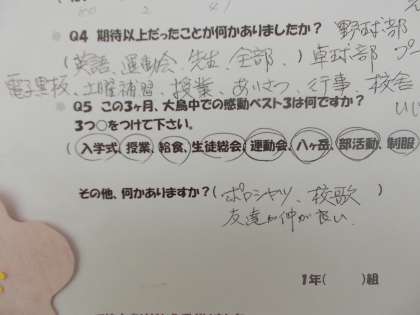 Q4 期待以上だったことが何かありましたか? 野球部
(英語、運動会、先生、全部、) 卓球部 プー
電子黒板、土曜補習、授業、あいさつ、行事、校舎
Q5 この3ヶ月、大鳥中での感動ベスト3は何ですか?
3つ○をつけて下さい。
(入学式、授業、給食、生徒総会、運動会、八ヶ岳、部活動、制服
その他、何かありますか?(ポロシャツ、校歌 )
友達が仲が良い
1年( )組